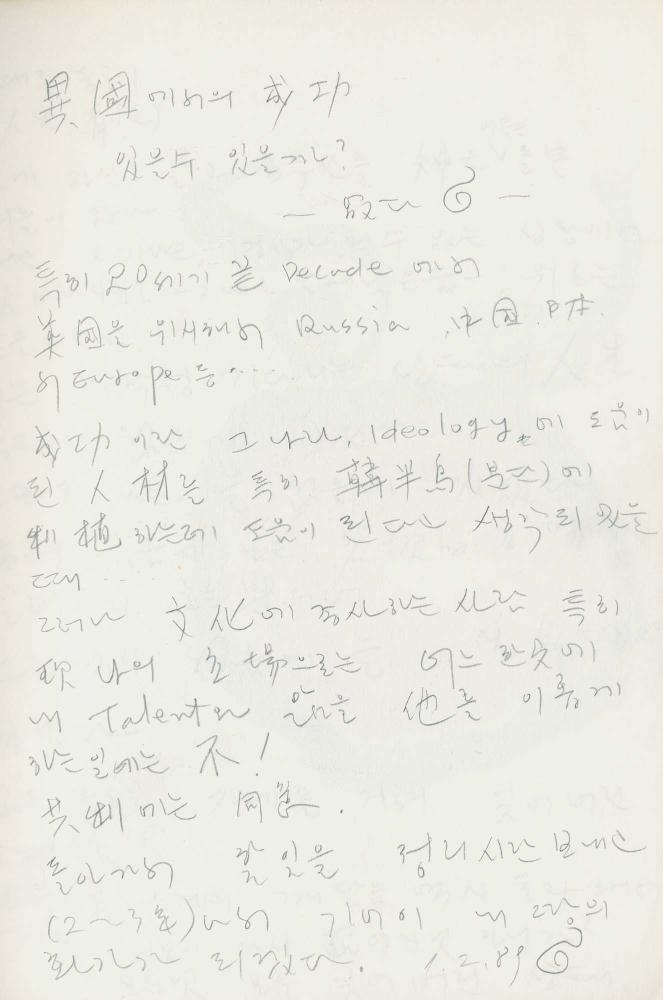 異國에서의 成功
있을수 있을가?
— 없다 —
특히 20세기 끝 Decade 에서
英國을 위시해서 Russia, 中國. 日本.
서 Europe 등....
成功 이란 그 나라, Ideology 에 도움이
된 人材를 특히 韓半島(분단)에
植 하는데 도움이 된다는 생각되었을
때 ...
그러나 文化에 종사하는 사람 특히
現 나의 立場으로는 어느 한곳에
내 Talent와 을 他를 이롭게
하는일에는 不!
共 미는 同意.
돌아가서 할일을 정리시간 보내고
(2~3年)나서 기어이 내 땅의
화가가 되겠다. 1.2.89